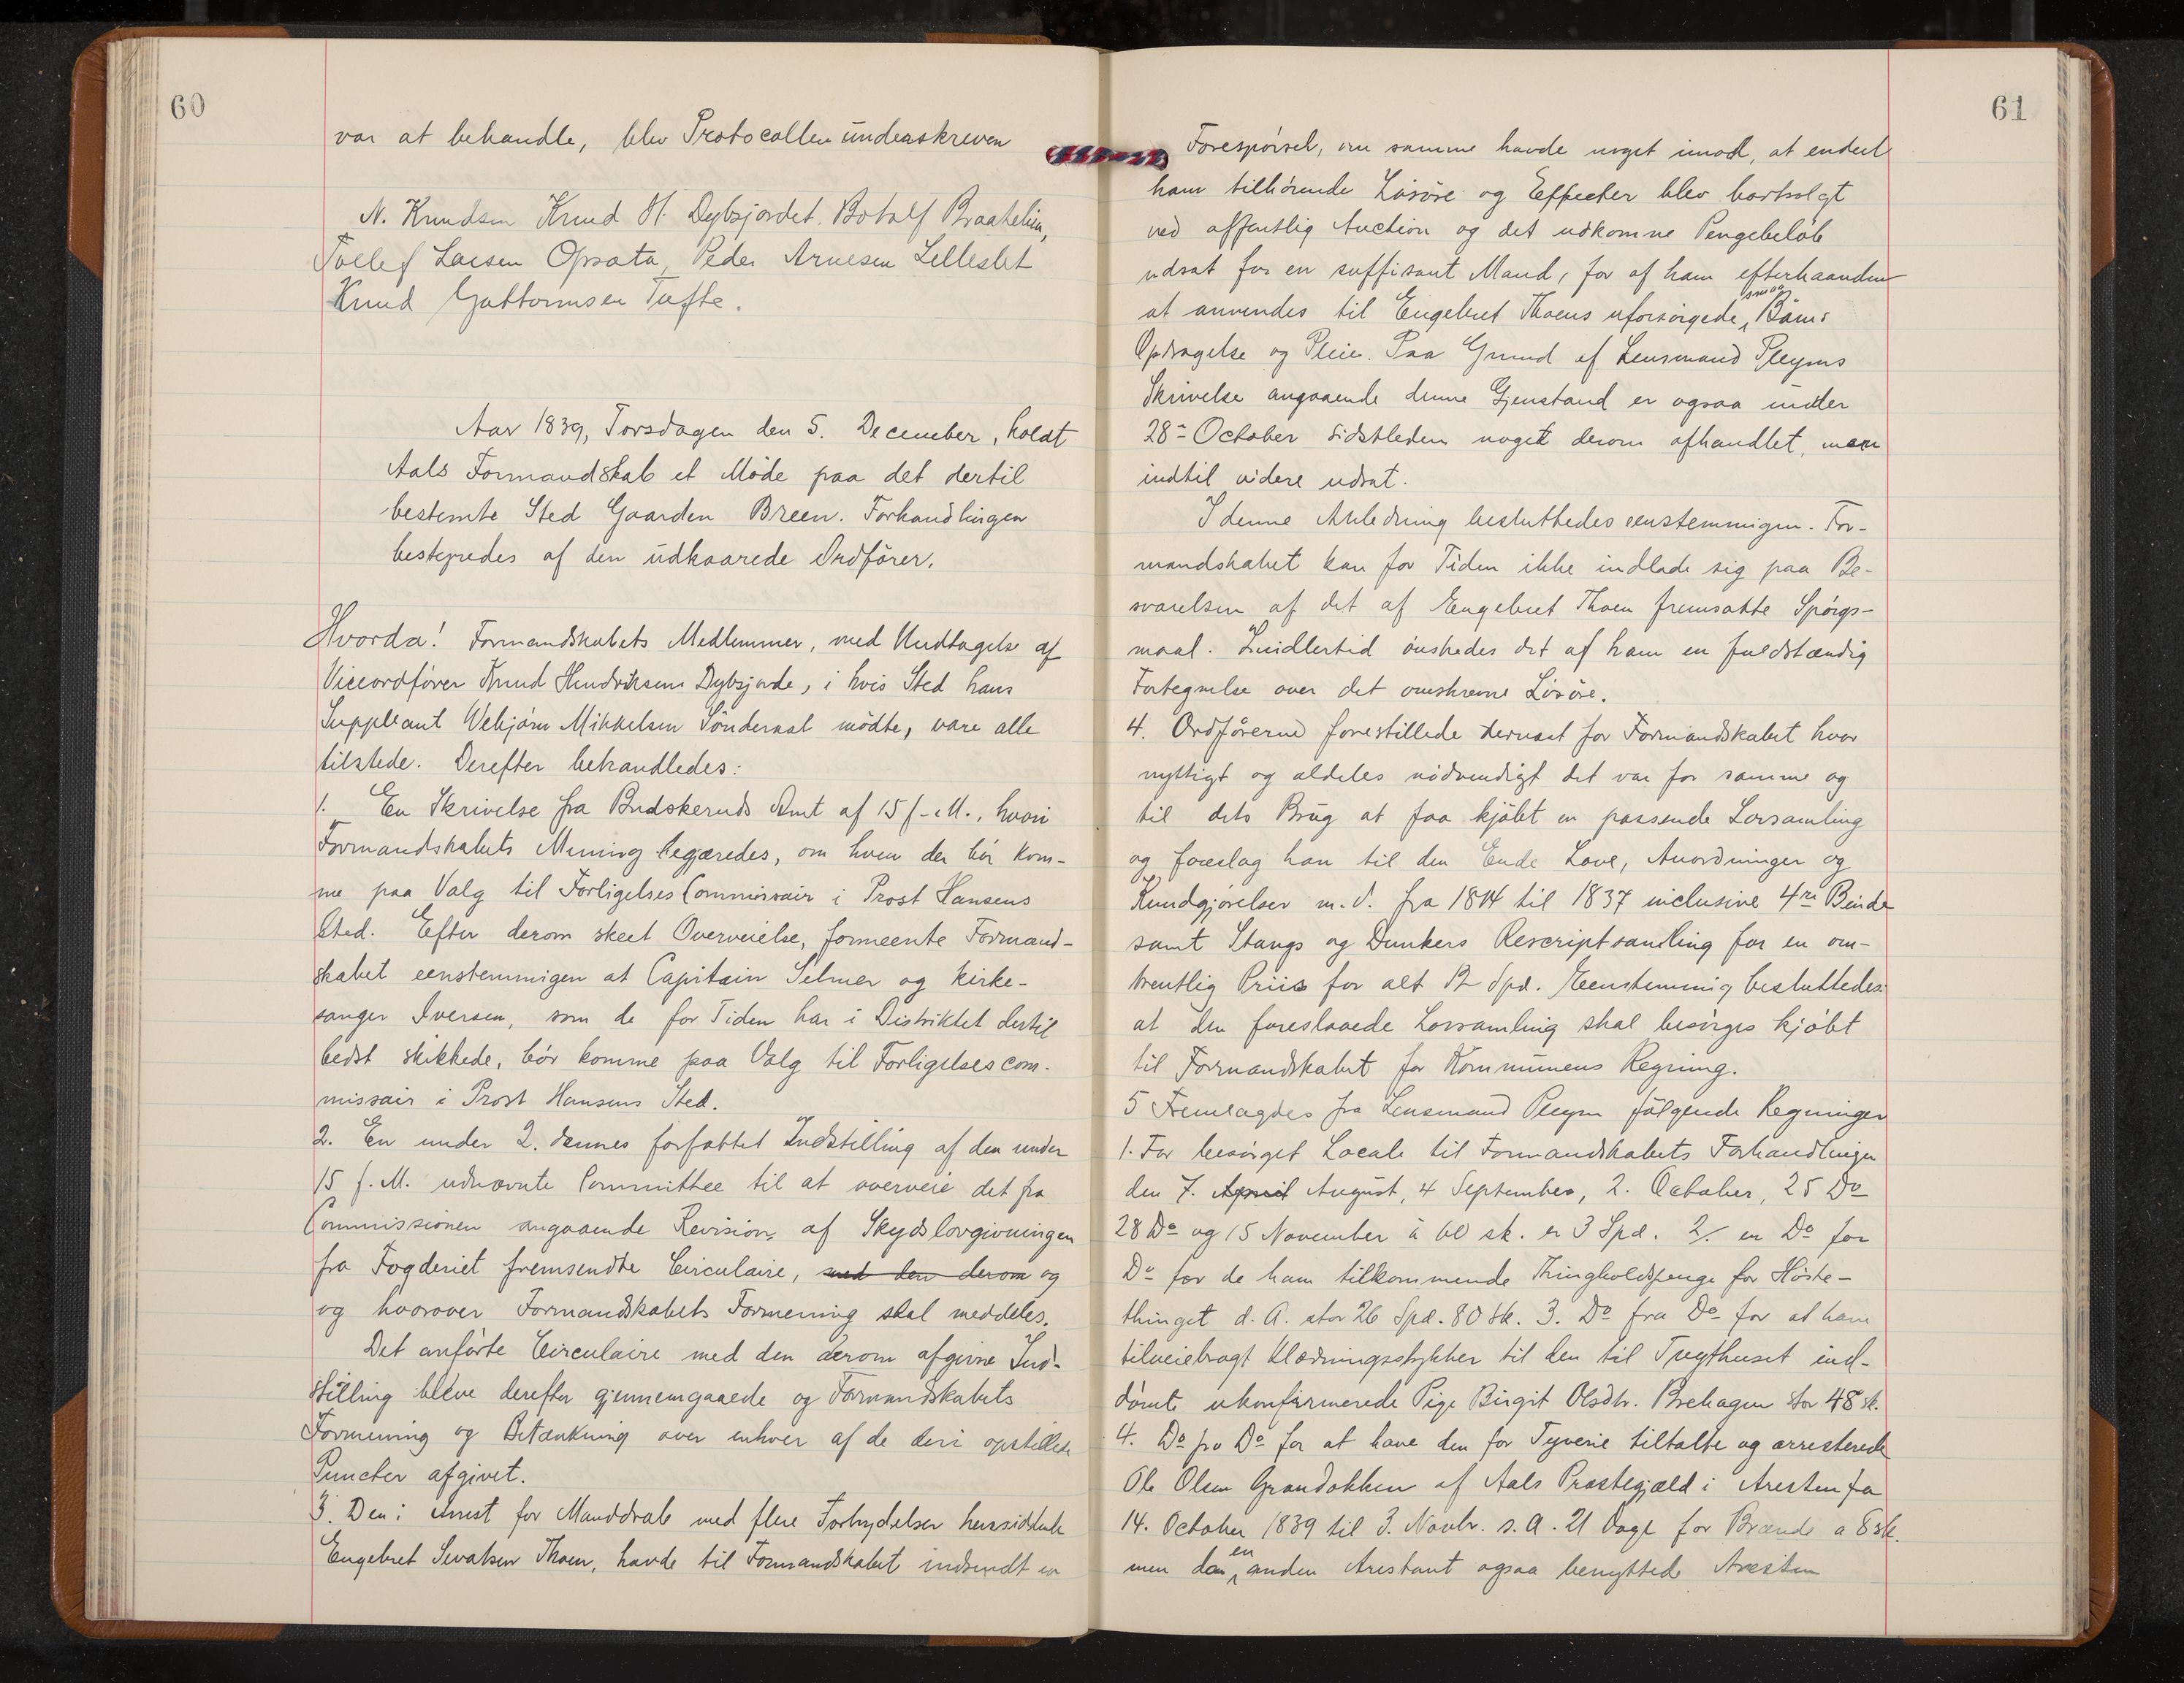 60
var at behandle, blev Protocollen underskreven
N. Knudsen Knud H. Dybsjordet. Botolf Braathelim,
Tollef Larsen Opsata, Peder Arnesen Lilleslet
Knud Guttormsen Tufte.
Aar 1839, Torsdagen den 5. December, holdt
Aals Formandskab et Møde paa det dertil
bestemte Sted Gaarden Breen. Forhandlingen
bestyredes af den udkaarede Ordfører.
Hvorda! Formandskabets Medlemmer, med Undtagelse af
Viceordfører Knud Hendriksen Dybsjorde, i hvis Sted hans
Suppleant Webjørn Mikkelsen Sönderaal mödte, vare alle
tilstede. Derefter behandledes:
1. En Skrivelse fra Buskeruds Amt af 15 f. M., hvori
Formandskabets Mening begjæredes, om hvem der bör kom-
me paa Valg til Forligelses Commissair i Prost Hansens
Sted. Efter derom skeet Overveielse, formeente Formand-
skabet eenstemmigen at Capitain Selmer og Kirke-
sanger Iversen, som de for Tiden her i Distriktet dertil
bedst skikkede, bör komme paa Valg til Forligelsescom-
missair i Prost Hansens Sted.
2. En under 2. dennes forfattet Indstilling af den under
15 f. M. udnævnte Committee til at overveie det fra
Commissionen angaaende Revision af Skydslovgivningen
fra Fogderiet fremsendte Circulaire, med den derom og
og hvorover Formandskabets Formening skal meddeles.
Det anförte Circulaire med den derom afgivne Ind-
stilling bleve derefter gjennemgaaede og Formandskabets
Formening og Betænkning over enhver af de deri opstillede
Puncter afgivet.
3. Den i Arrest for Manddrab med flere Forbrydelser hensiddende
Engebret Sevatsen Thoen, havde til Formandskabet indsendt en
61
Forespörsel, om samme havde noget imod, at endeel
ham tilhörende Lösöre og Effecter blev bortsolgt
ved offentlig Auction og det udkomne Pengebelöb
udsat for en suffisant Mand, for af ham efterhaanden
smaa
at anvendes til Engebret Thoens uforsörgede, Börns
Opdragelse og Pleie. Paa Grund af Lensmand Pleyms
Skrivelse angaaende denne Gjenstand er ogsaa under
28de October sidstleden noget derom afhandlet, men
indtil videre udsat.
I denne Anledning besluttedes eenstemmigen. For-
mandskabet kan for Tiden ikke indlade sig paa Be-
svarelsen af det af Engebret Thoen fremsatte Spörgs-
maal. Imidlertid önskedes det af ham en fuldstændig
Fortegnelse over det omskrevne Lösöre.
4. Ordföreren forestillede dernæst for Formandskabet hvor
nyttigt og aldeles nödvendigt det var for samme og
til dets Brug at faa kjöbt en passende Lovsamling
og foreslog han til den Ende Love, Anordninger og
Kundgjörelser m. v. fra 1814 til 1837 inclusive 4re Binde
samt Stangs og Dunkers Rescriptsamling for en om-
trentlig Priis for alt 12 Spd. Eenstemmig besluttedes:
at den foreslaaede Lovsamling skal besörges kjöbt
til Formandskabet for Kommunens Regning.
5 Fremlagdes fra Lensmand Pleym fölgende Regninger
1. For besörget Locale til Formandskabets Forhandlinger
den 7. April August, 4 September, 2. October, 25 Do
28 Do og 15 November à 60 sk. er 3 Spd. 2/. en Do for
Do for de ham tilkommende Thingholdspenge for Höste-
thinget d. A. stor 26 Spd. 80 sk. 3. Do fra Do for at have
tilveiebragt Klædningsstykker til den til Tugthuset ind-
dömte ukonfirmerede Pige Birgit Olsdtr. Brehagen stor 48 sk.
4. Do fra Do for at have den for Tyverie tiltalte og arresterede
Ole Olsen Grandokken af Aals Præstegjæld i Aresten fra
14. October 1839 til 3. Novbr. s. A. 21 Dage for Brænde a 8 sk.
en
men da anden Arestant ogsaa benyttede Aresten